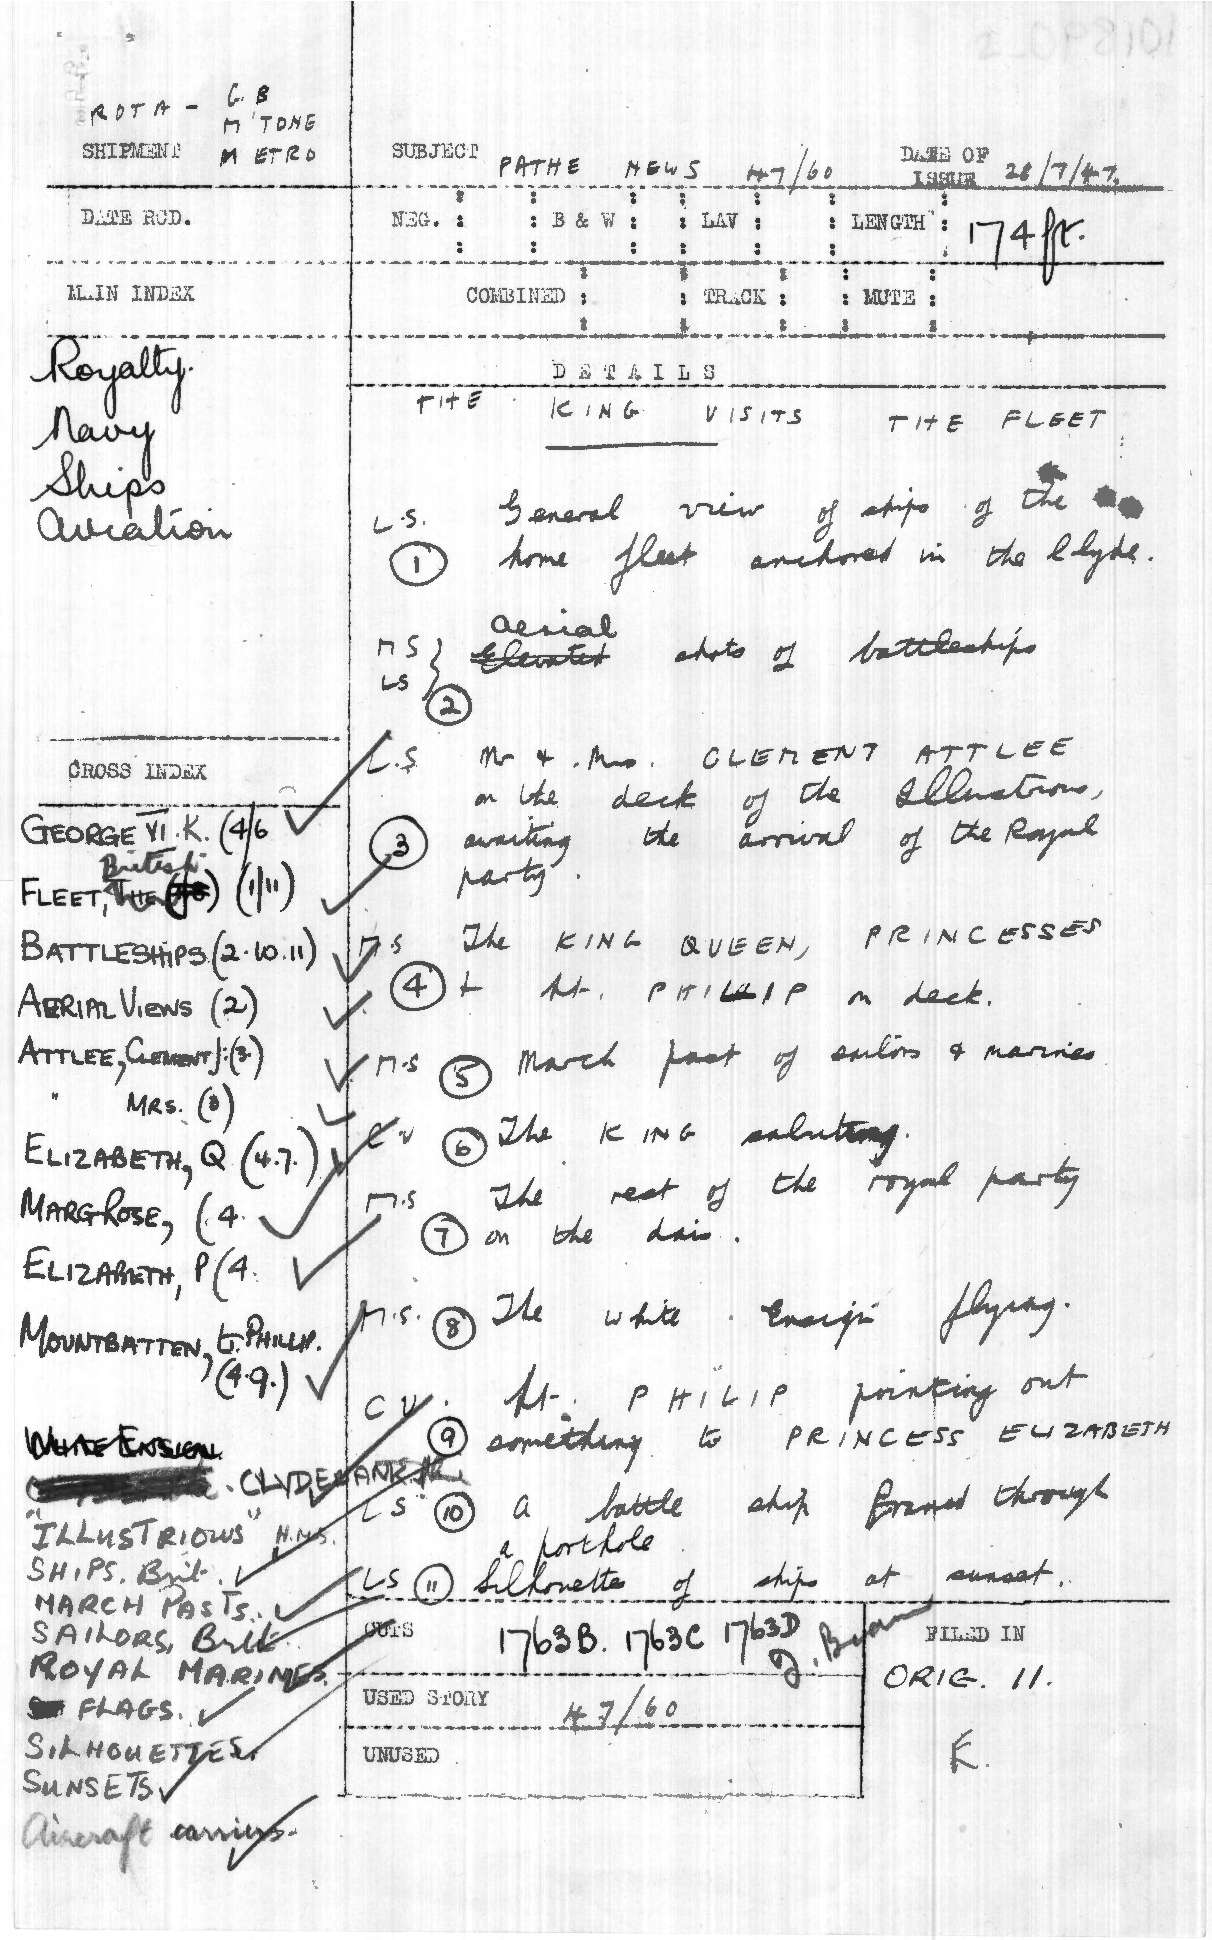 ROTA - G.B
M'TONE
SHIPMENT METRO
SUBJECT PATHE NEWS 47/60
DATE OF
ISSUE 28/7/47.
DATE RCD.
NEG. : : B & W : : LAV : : LENGTH : 174 ft.
MAIN INDEX
COMBINED : : TRACK : : MUTE :
Royalty.
Navy
Ships
Aviation
DETAILS
THE KING VISITS THE FLEET
L.S. General view of ships of the
1 home fleet anchored in the Clyde.
aerial
MS shots of battleships
LS
2
L.S Mr & Mrs. CLEMENT ATTLEE
on the deck of the Illustrious,
3 awaiting the arrival of the Royal
party.
M.S The KING QUEEN, PRINCESSES
4 + Lt. PHILIP on deck.
M.S 5 March past of sailors & marines
C U 6 The KING saluting.
M.S The rest of the royal party
7 on the dais.
M.S. 8 The white Ensign flying.
C U. Lt. PHILIP pointing out
9 something to PRINCESS ELIZABETH
LS 10 a battle ship framed through
a porthole
LS 11 Silhouettes of ships at sunset.
CROSS INDEX
GEORGE VI. K. (4/6
British
FLEET, THE (1/11)
BATTLESHIPS (2.10.11)
AERIAL VIEWS (2)
ATTLEE, CLEMENT J: (3)
" MRS. (3)
ELIZABETH, Q (4.7.)
MARG ROSE, (.4.
ELIZABETH, P (4.
MOUNTBATTEN, Lt. PHILIP.
(4.9.)
WHITE ENSIGN
CLYDEBANK
"ILLUSTRIOUS" H.M.S.
SHIPS. Brit.
MARCH PASTS.
SAILORS, Brit.
ROYAL MARINES.
FLAGS.
SILHOUETTES.
SUNSETS
Aircraft carriers.
CUTS 1763B. 1763C 1763D
USED STORY 47/60
UNUSED
FILED IN
ORIG. 11.
E.